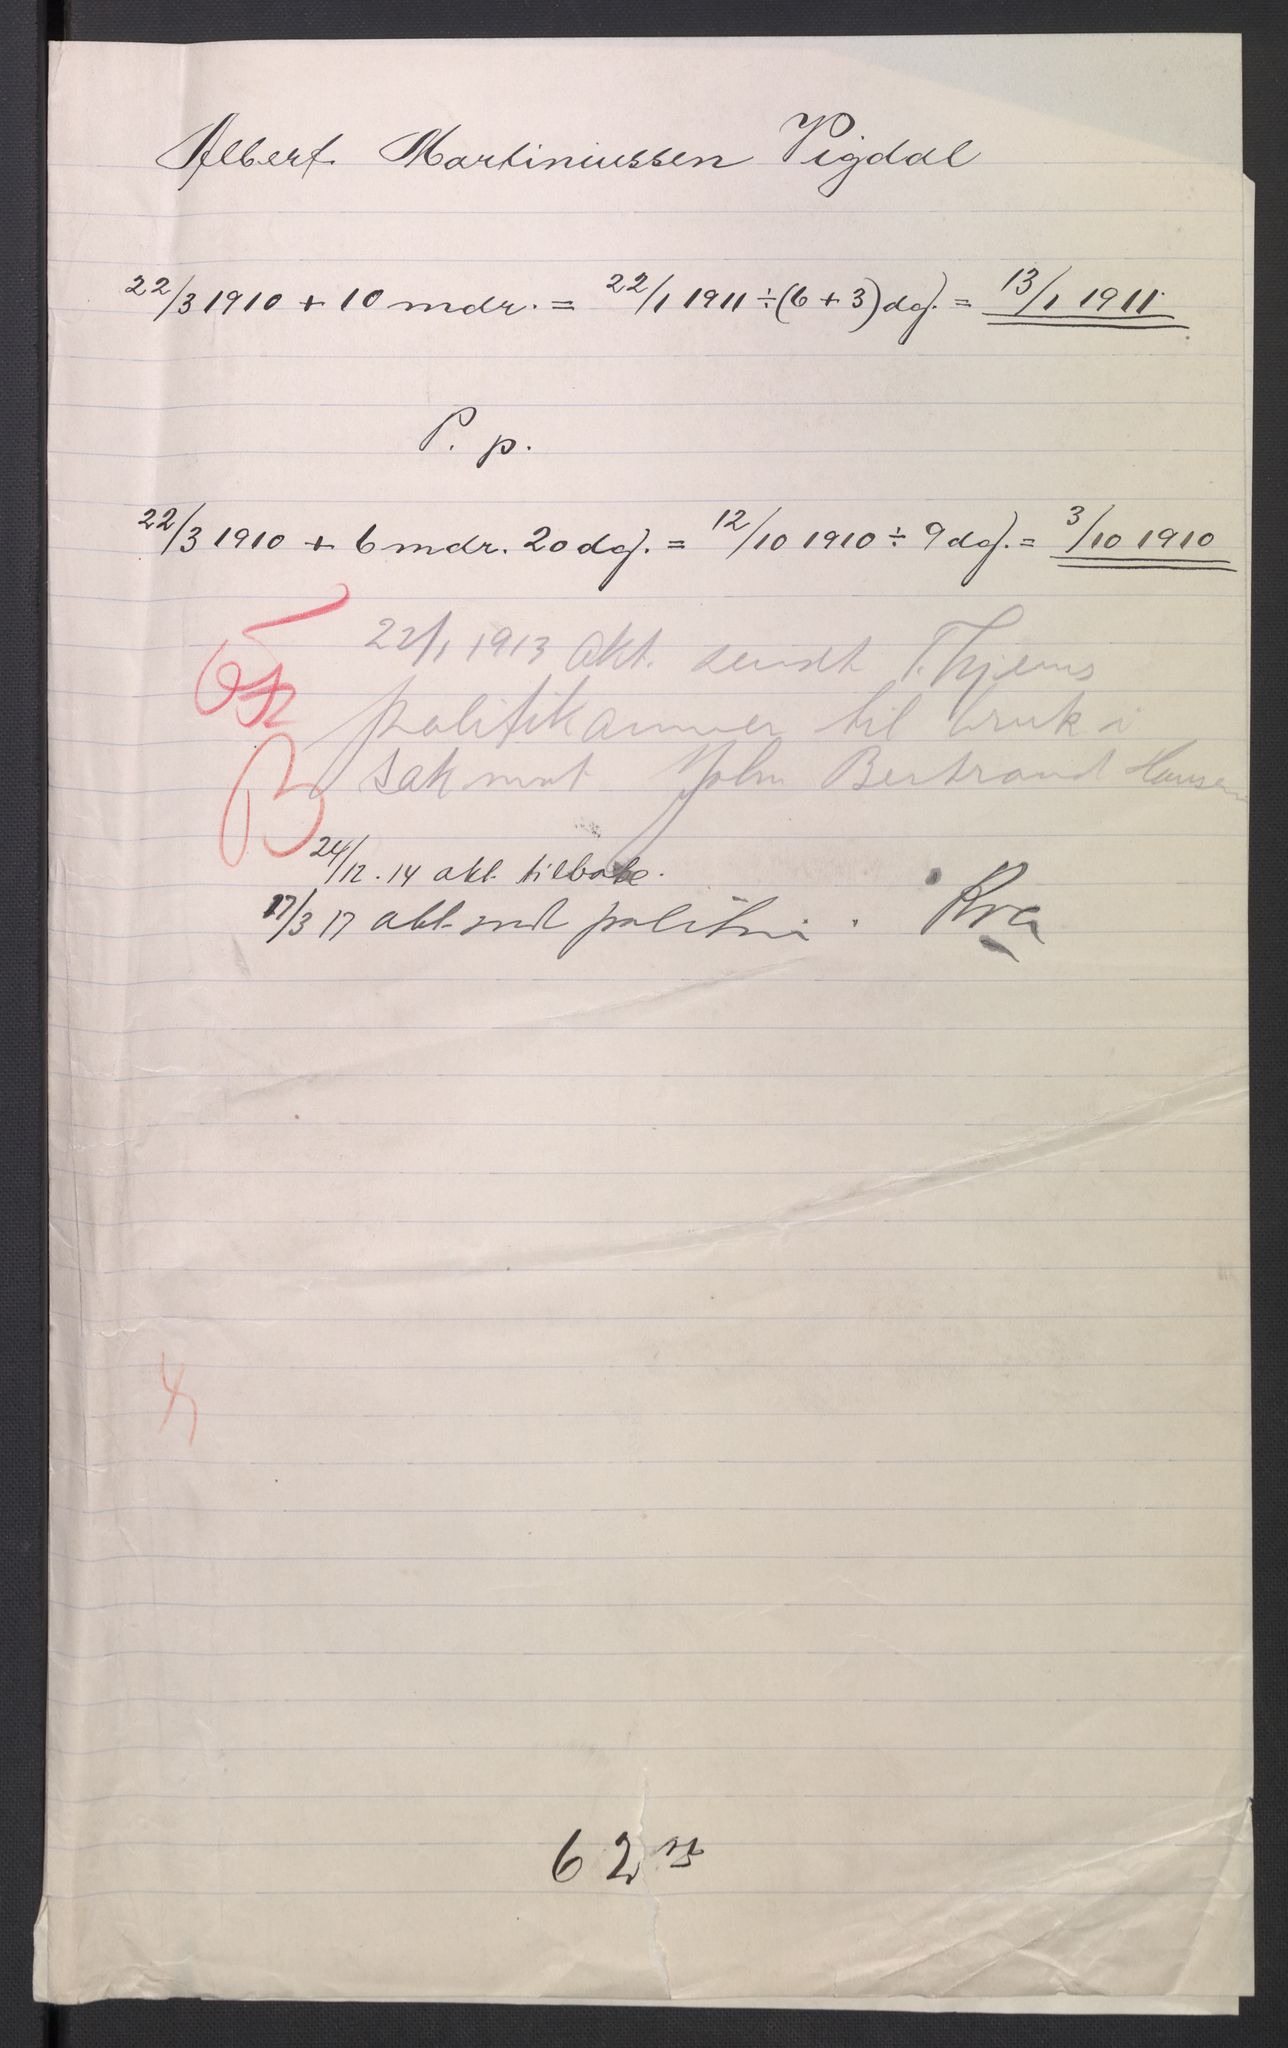 Albert Martiniussen Vigdal
22/3 1910 + 10 mdr. = 22/1 1911 ÷ (6 + 3) dg. = 13/1 1911
P. p.
22/3 1910 + 6 mdr. 20 dg. = 12/10 1910 ÷ 9 dg. = 3/10 1910
22/1 1913 akt. sendt T.hjems
politikammer til bruk i
sak mot John Bertrand Hansen
B
24/12. 14 akt tilbake.
17/3 17 akt sendt politiet i Kra
62